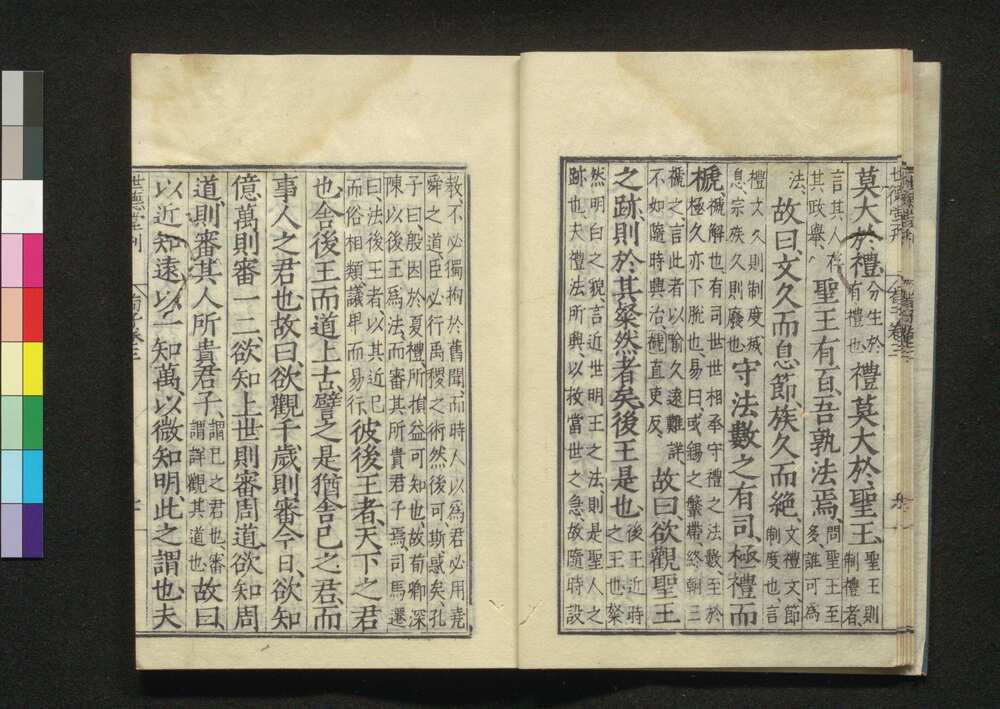 莫大於禮、分生於有禮也禮莫大於聖王、聖王則制禮者、
言其人存其政舉、聖王有百、吾孰法焉、問聖王至多、誰可爲
法、故曰、文久而息、節族久而絶、文禮文、節制度也、言
禮文久則制度滅息宗族久則廢也守法數之有司、極禮而
褫、褫解也、有司世世相承守禮之法數、至於極久亦下脫也、易曰、或錫之鞶帶終朝三
褫之、言此者以喻久遠難詳不如隨時興治、褫直吏反、故曰、欲觀聖王
之跡、則於其粲然者矣、後王是也、後王近時之王也粲
然明白之貌、言近世明王之法、則是聖人之跡也、夫禮法所興、以救當世之急故隨時設
教、不必獨拘於舊聞、而時人以爲君必用堯舜之道、臣必行禹稷之術、然後可、斯惑矣、孔
子曰、殷因於夏禮、所損益可知也、故荀卿深陳以後王爲法、而審其所貴君子焉、司馬遷
曰、法後王者、以其近己而俗相類、議卑而易行、彼後王者、天下之君
也、舍後王而道上古、譬之是猶舍己之君、而
事人之君也、故曰、欲觀千歲、則審今日、欲知
億萬、則審一二、欲知上世、則審周道、欲知周
道、則審其人所貴君子、謂己之君也審謂詳觀其道也故曰、
以近知遠、以一知萬、以微知明、此之謂也、夫
世德堂刊 荀子卷三